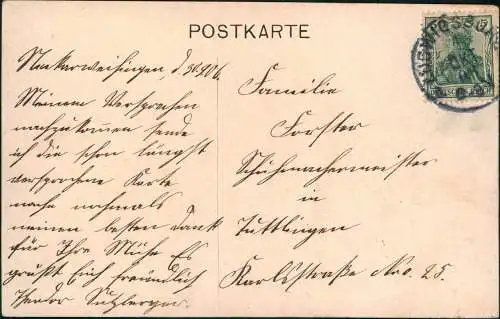 POSTKARTE
Neckarweihingen, d. 30.9.06.
Meinem Versprechen
nachzukommen sende
ich die schon längst
versprochene Karte
nebst nochmals
meinen besten Dank
für Ihre Mühe Es
grüßt Euch freundlich
Theodor
Familie
Forster
Schuhmachermeister
in
Tuttlingen
Karlsstraße Nro. 25.